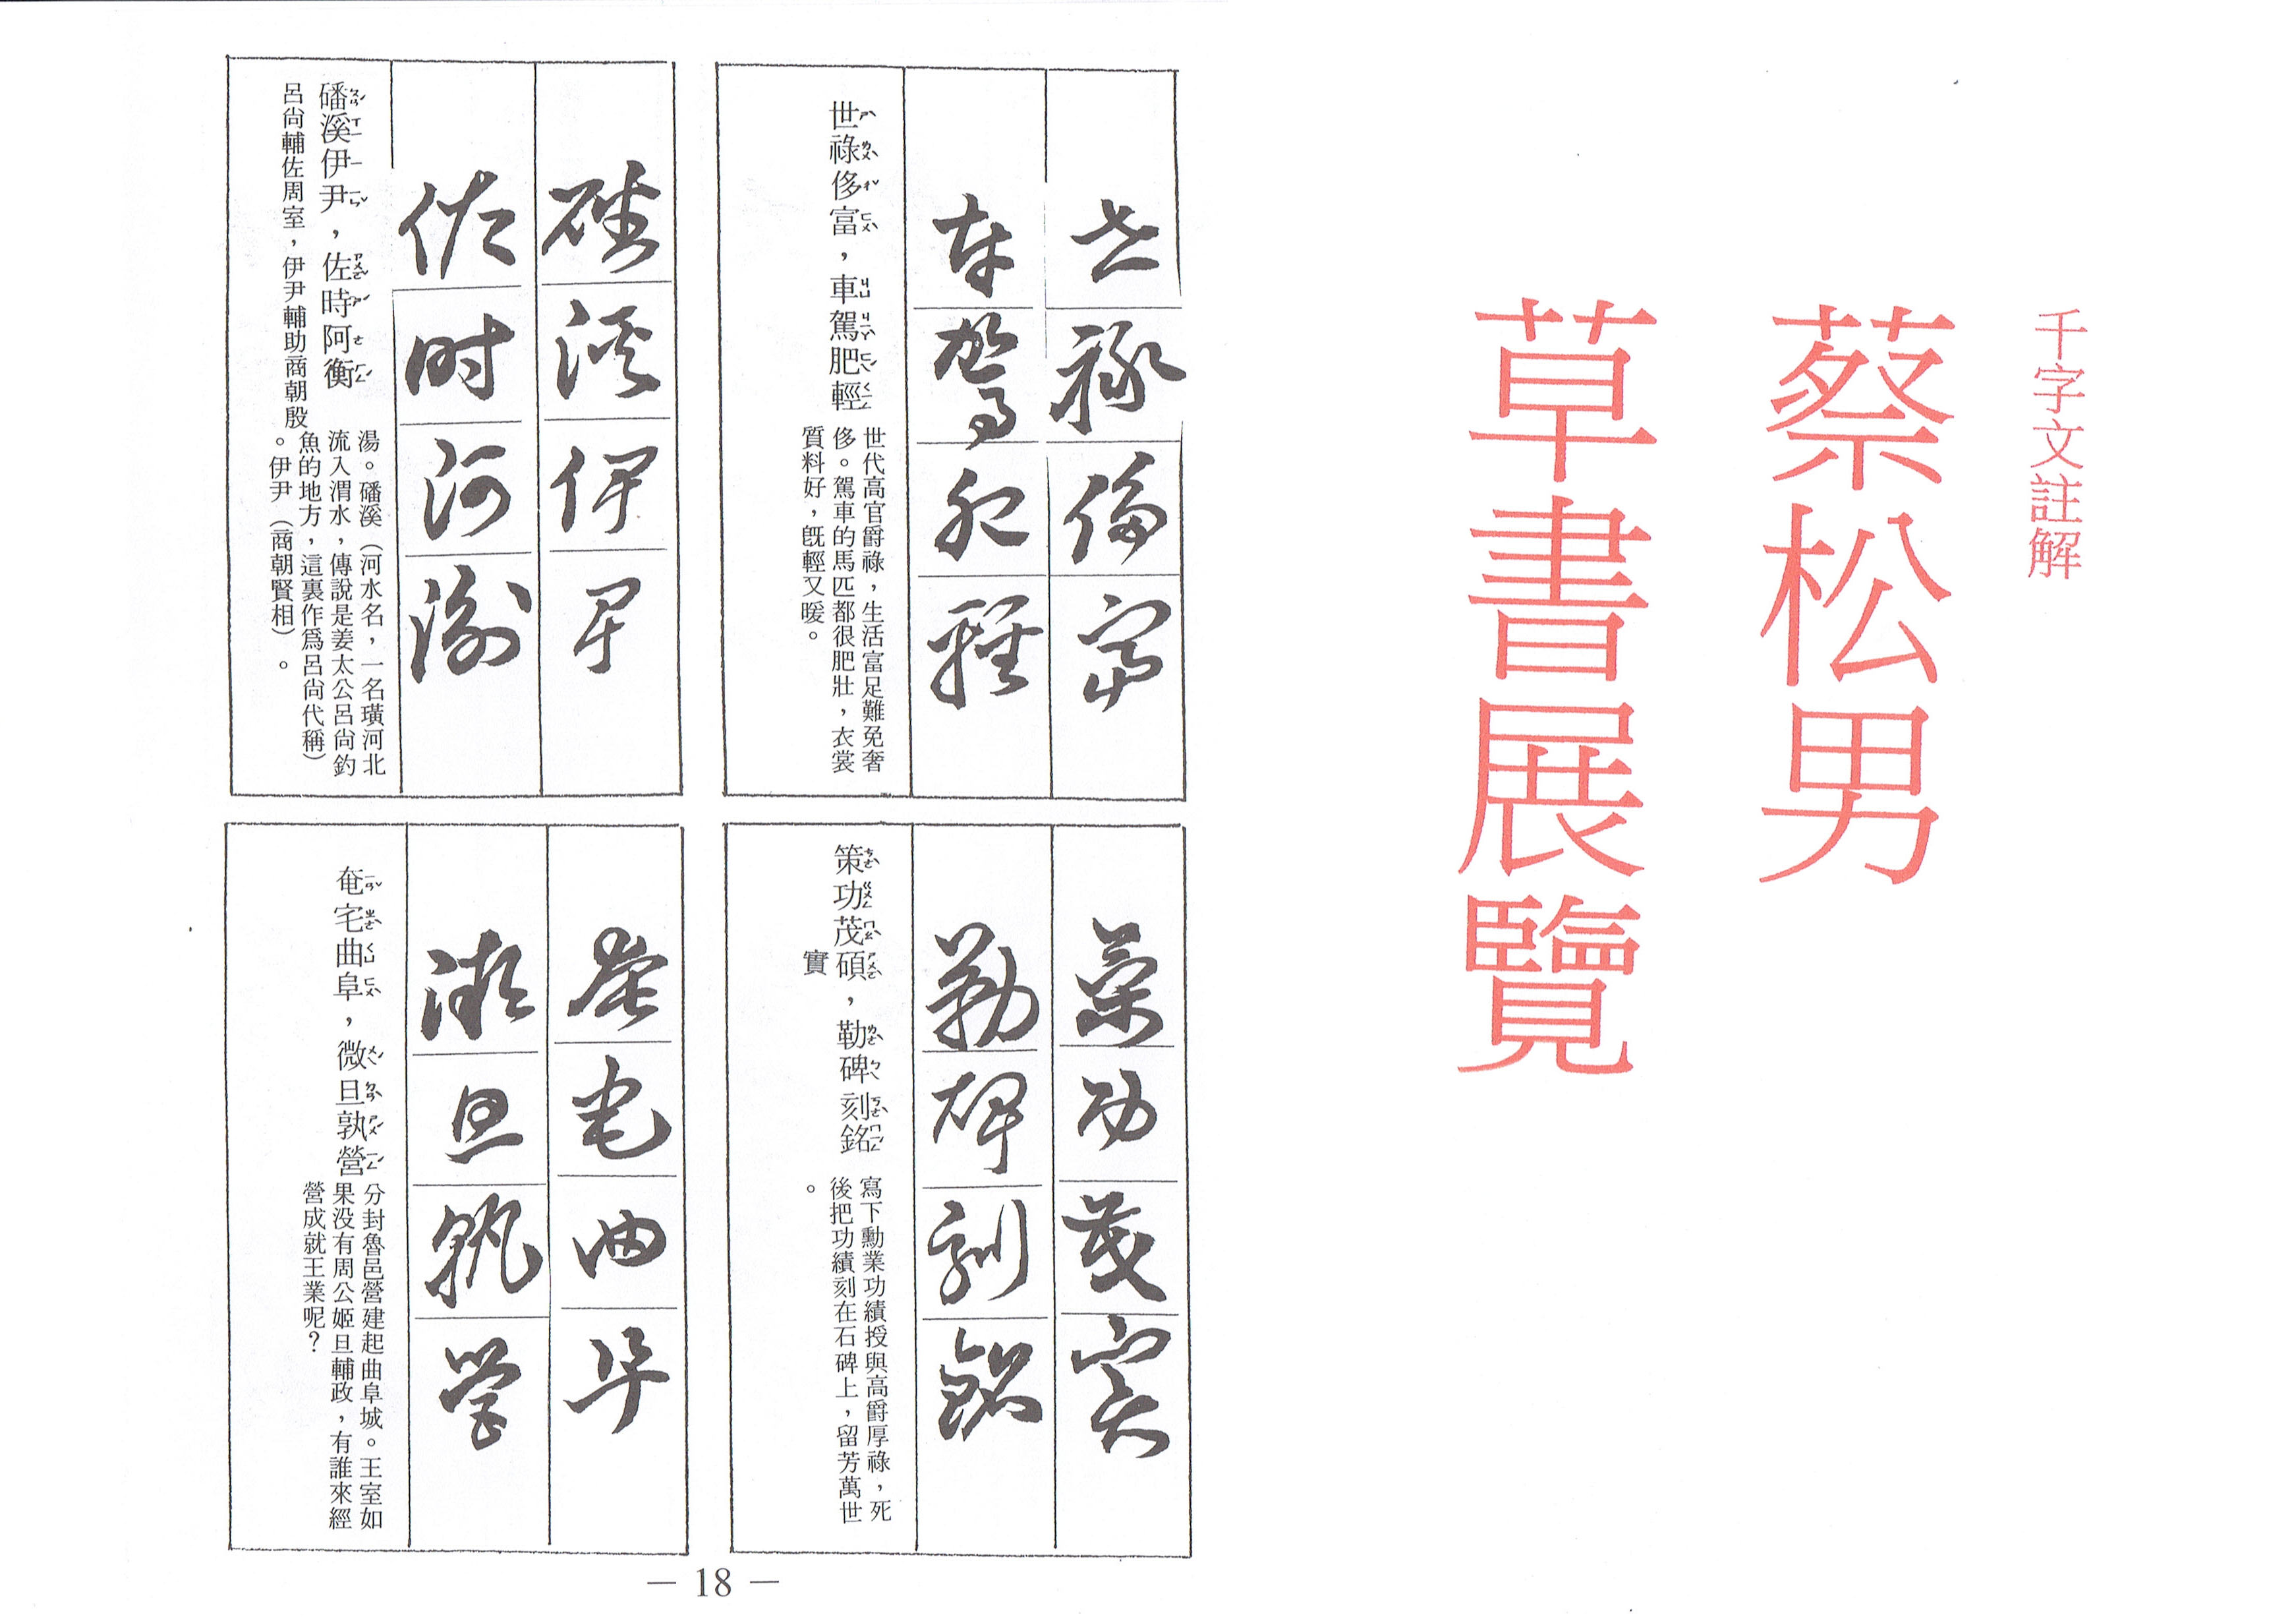 千字文註解
蔡松男
草書展覽
世祿侈富
車駕肥輕
世祿侈富，車駕肥輕
世代高官爵祿，生活富足難免奢
侈。駕車的馬匹都很肥壯，衣裳
質料好，旣輕又暖。
策功茂實
勒碑刻銘
策功茂碩，勒碑刻銘
實
寫下勳業功績授與高爵厚祿，死
後把功績刻在石碑上，留芳萬世
。
磻溪伊尹
佐時阿衡
磻溪伊尹，佐時阿衡
呂尚輔佐周室，伊尹輔助商朝殷
湯。磻溪（河水名，一名璜河北
流入渭水，傳說是姜太公呂尚釣
魚的地方，這裏作爲呂尚代稱）
。伊尹（商朝賢相）。
奄宅曲阜
微旦孰營
奄宅曲阜，微旦孰營
分封魯邑營建起曲阜城。王室如
果没有周公姬旦輔政，有誰來經
營成就王業呢？
— 18 —